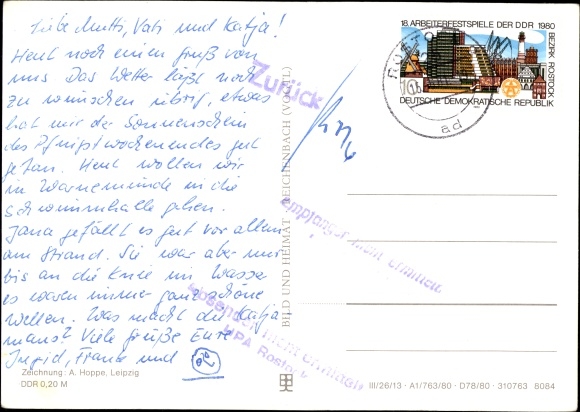 Liebe Mutti, Vati und Katja!
Heut noch einen Gruß von
uns. Das Wetter läßt noch
zu wünschen übrig, etwas
hat mir der Sonnenschein
des Pfingstwochenendes gut
getan. Heut wollen wir
in Warnemünde in die
Schwimmhalle gehen.
Jana gefällt es gut vor allem
am Strand. Sie war aber nur
bis an die Knie im Wasser
es waren immer ganz schöne
Wellen. Was macht die Katja
maus? Viele Grüße Eure
Ingrid, und
Zeichnung: A. Hoppe, Leipzig
DDR 0,20 M
Zurück
BILD UND HEIMAT REICHENBACH (VOGTL)
18. ARBEITERFESTSPIELE DER DDR 1980
BEZIRK ROSTOCK
10
DEUTSCHE DEMOKRATISCHE REPUBLIK
ROSTO
ad
Empfänger nicht ermittelt
Absender nicht ermittelt
HPA Rostock
III/26/13 · A1/763/80 · D78/80 · 310763 8084